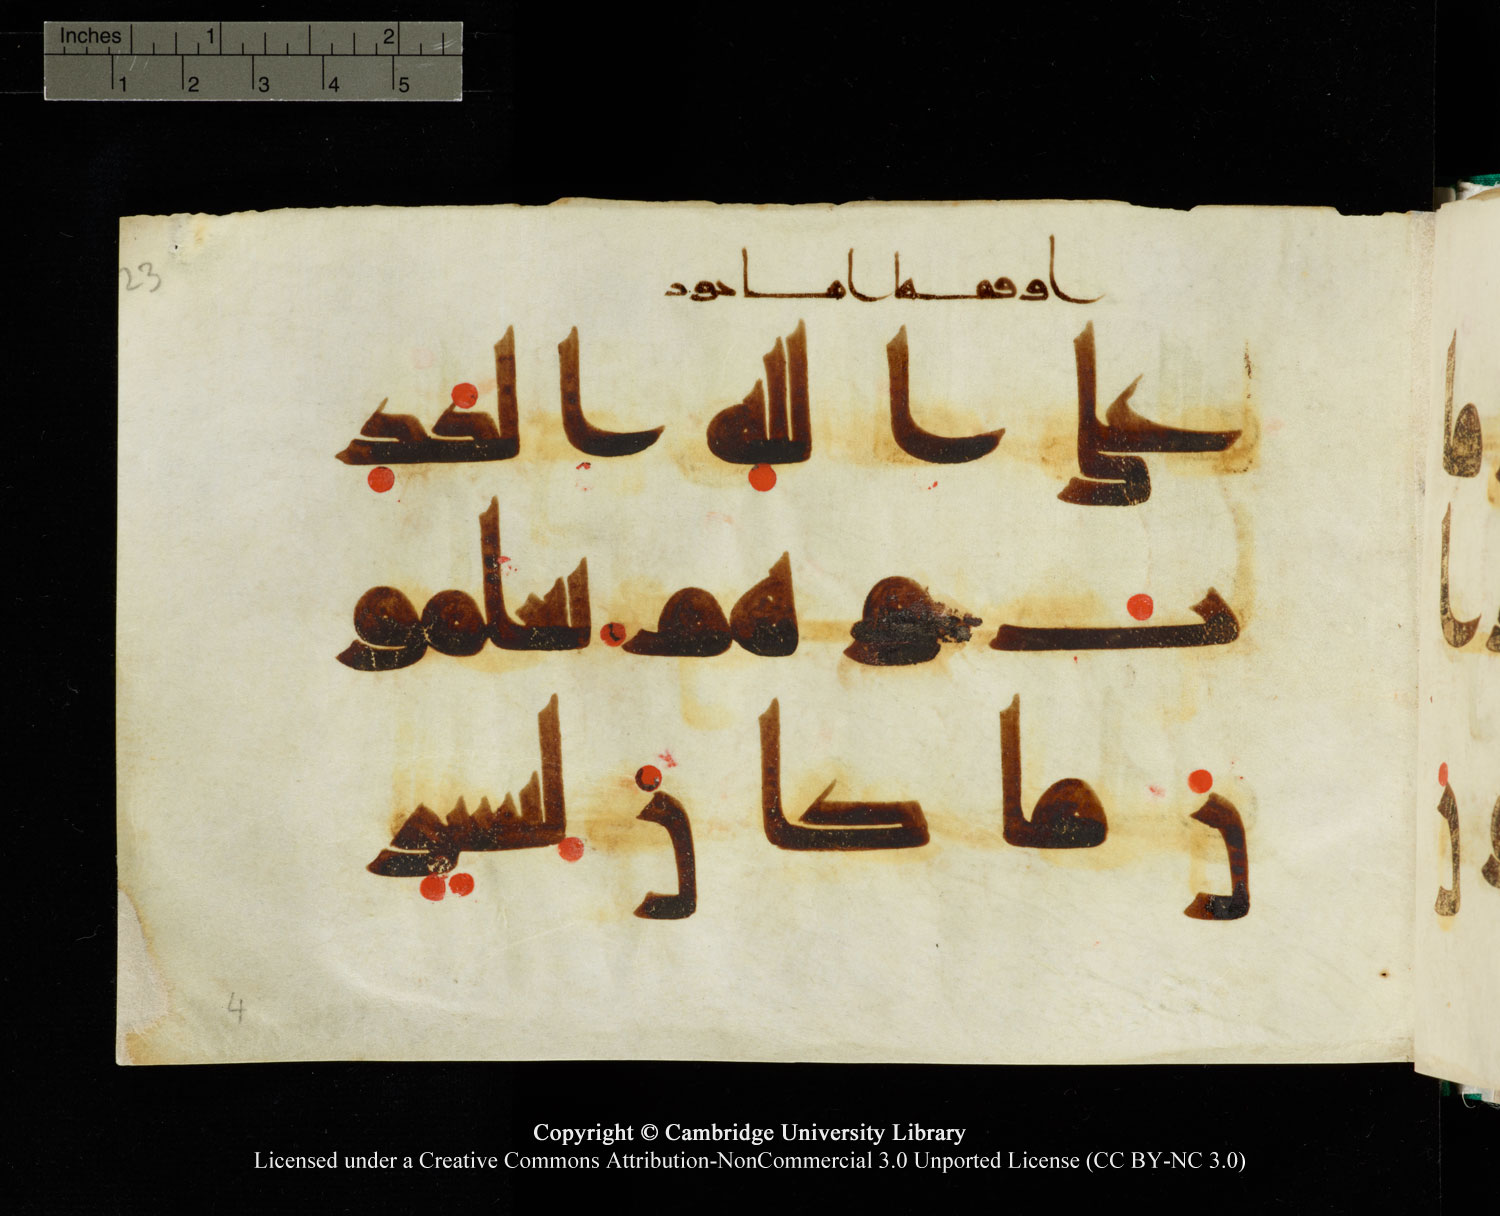 Inches 1 2
1 2 3 4 5
23
اوقفها اماجور
على الله الكذ
ب و هم يعلمو
ن ما كا ن لبشر
4
Copyright © Cambridge University Library
Licensed under a Creative Commons Attribution-NonCommercial 3.0 Unported License (CC BY-NC 3.0)